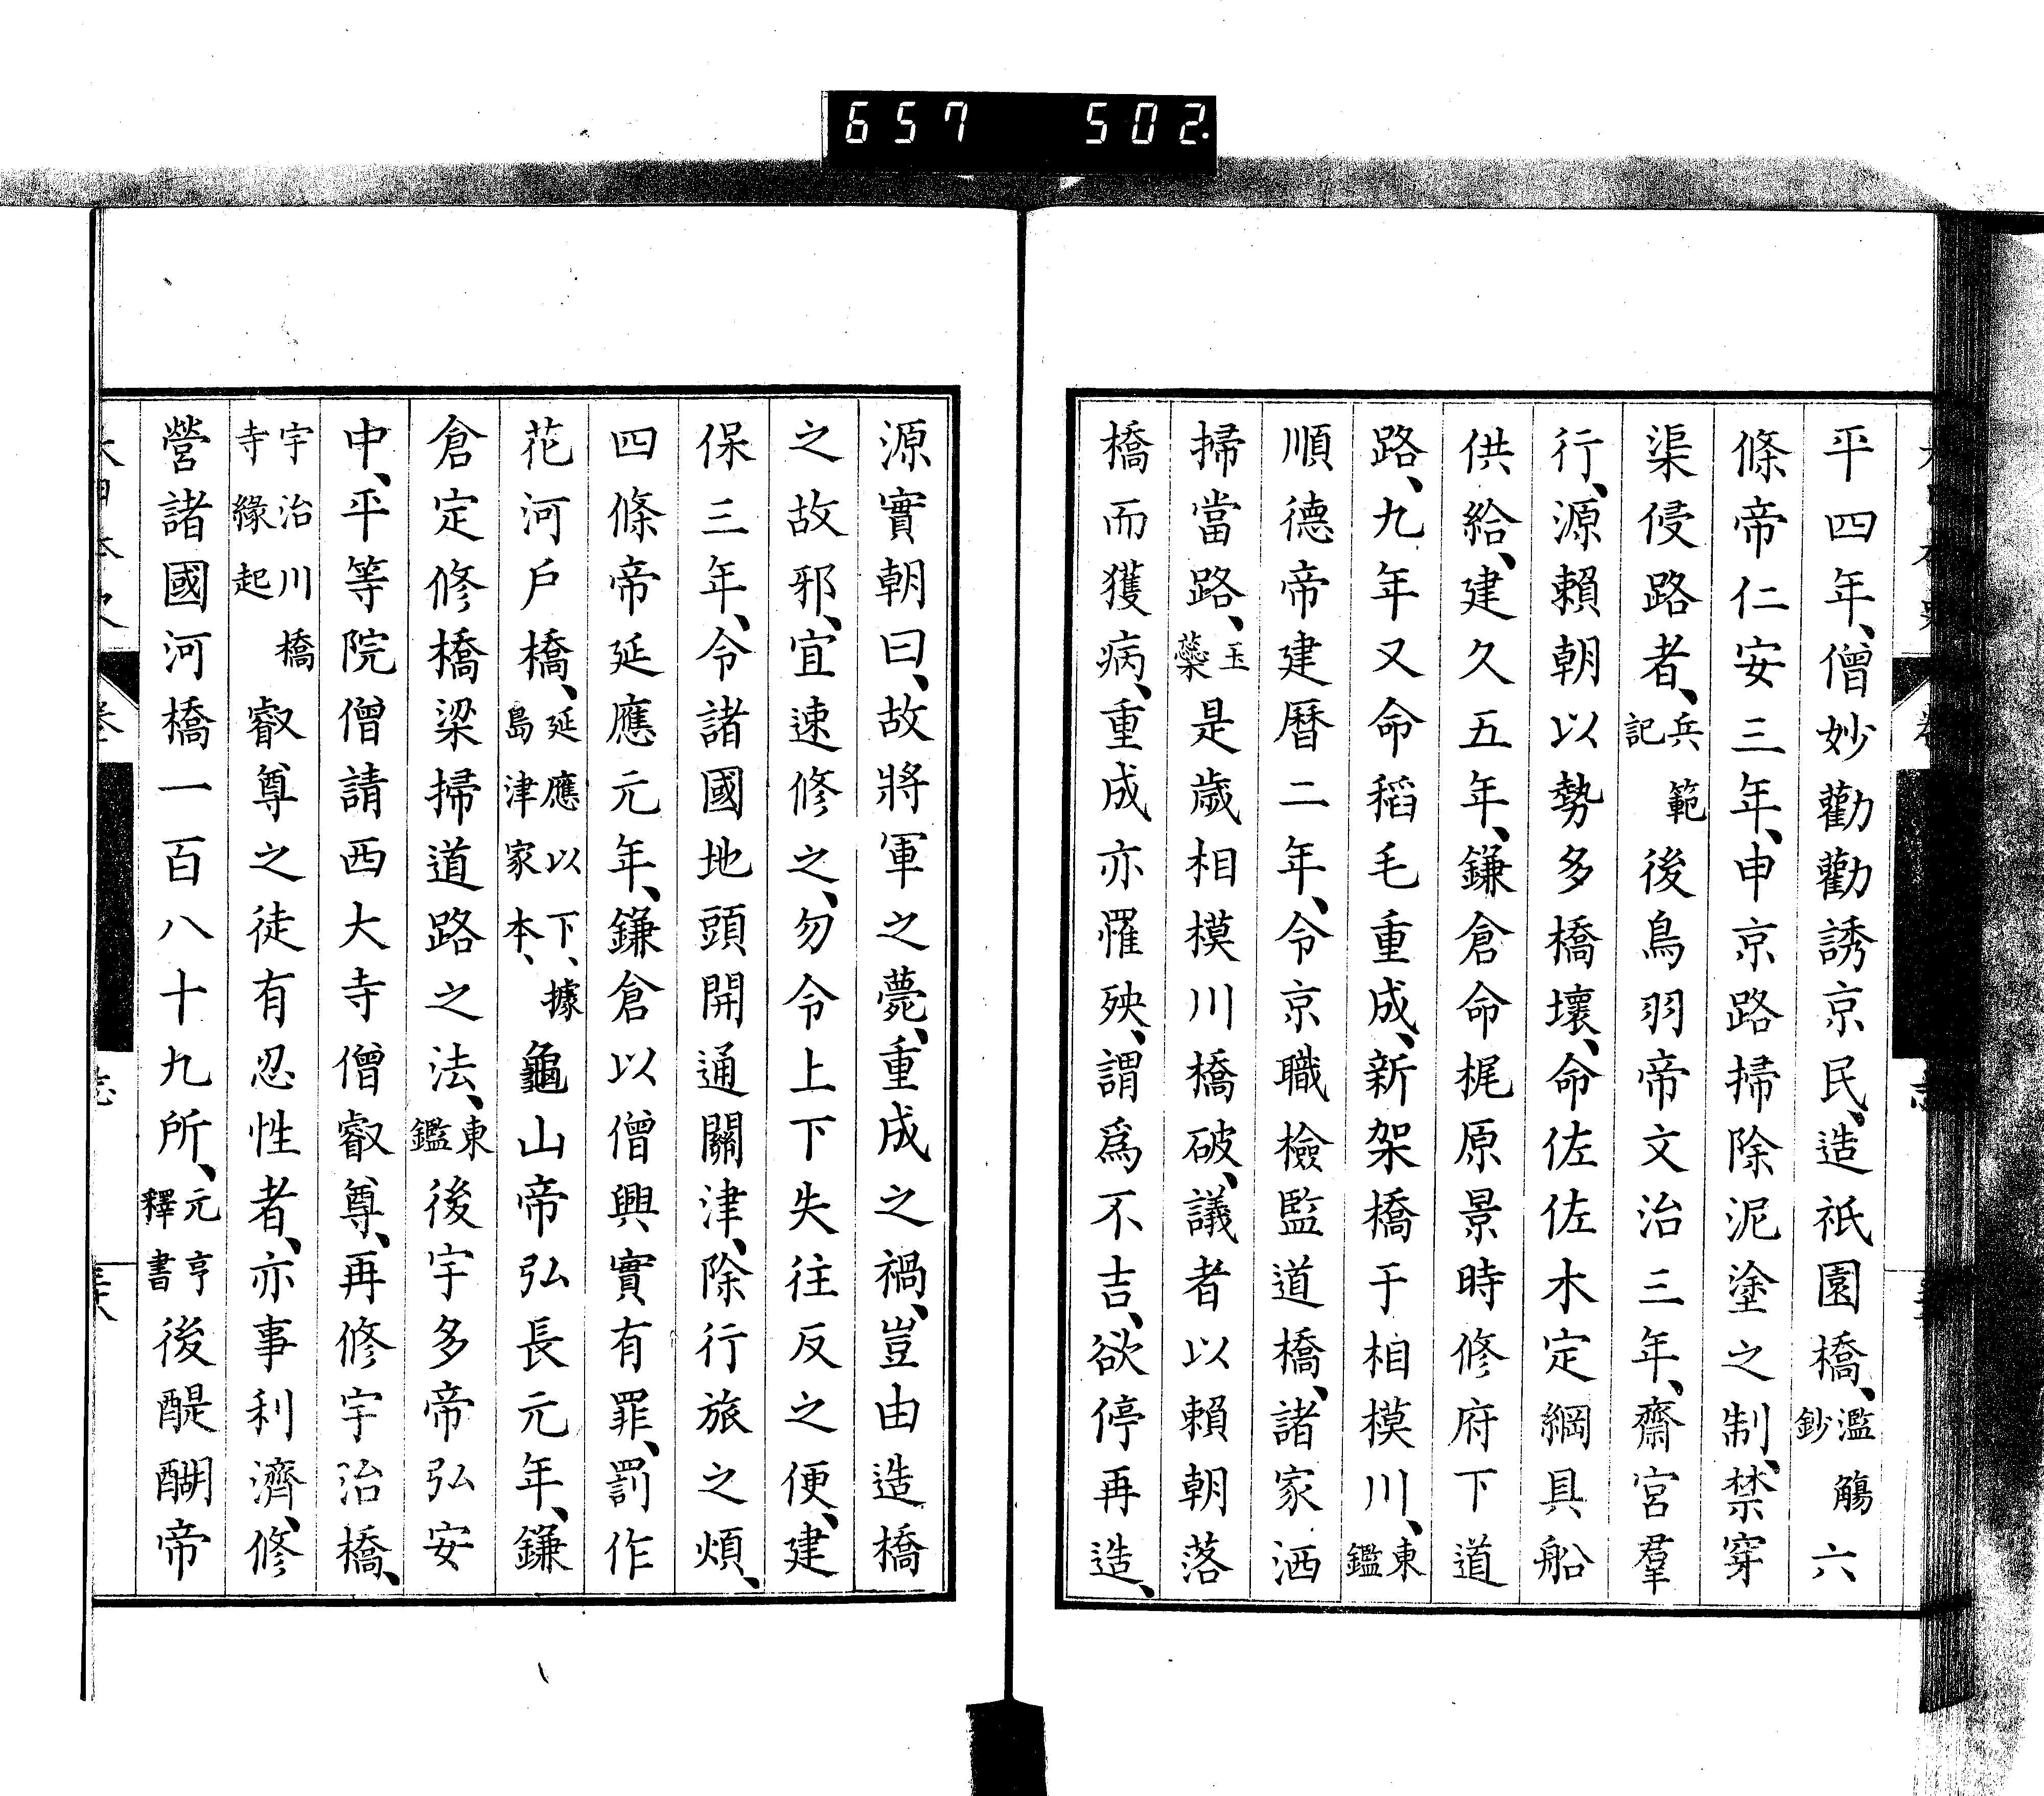 657 502.
平四年、僧妙勸勸誘京民、造祇園橋、濫觴鈔六
條帝仁安三年、申京路掃除泥塗之制、禁穿
渠侵路者、兵範記後鳥羽帝文治三年、齋宮羣
行、源賴朝以勢多橋壞、命佐佐木定綱具船
供給、建久五年、鎌倉命梶原景時修府下道
路、九年又命稻毛重成、新架橋于相模川、東鑑
順德帝建曆二年、令京職檢監道橋、諸家洒
掃當路、玉蘂是歲相模川橋破、議者以賴朝落
橋而獲病、重成亦罹殃、謂爲不吉、欲停再造、
源實朝曰、故將軍之薨、重成之禍、豈由造橋
之故邪、宜速修之、勿令上下失往反之便、建
保三年、令諸國地頭開通關津、除行旅之煩、
四條帝延應元年、鎌倉以僧興實有罪、罰作
花河戶橋、延應以下、據島津家本、龜山帝弘長元年、鎌
倉定修橋梁掃道路之法、東鑑後宇多帝弘安
中、平等院僧請西大寺僧叡尊、再修宇治橋、
宇治川橋寺緣起叡尊之徒有忍性者、亦事利濟、修
營諸國河橋一百八十九所、元亨釋書後醍醐帝